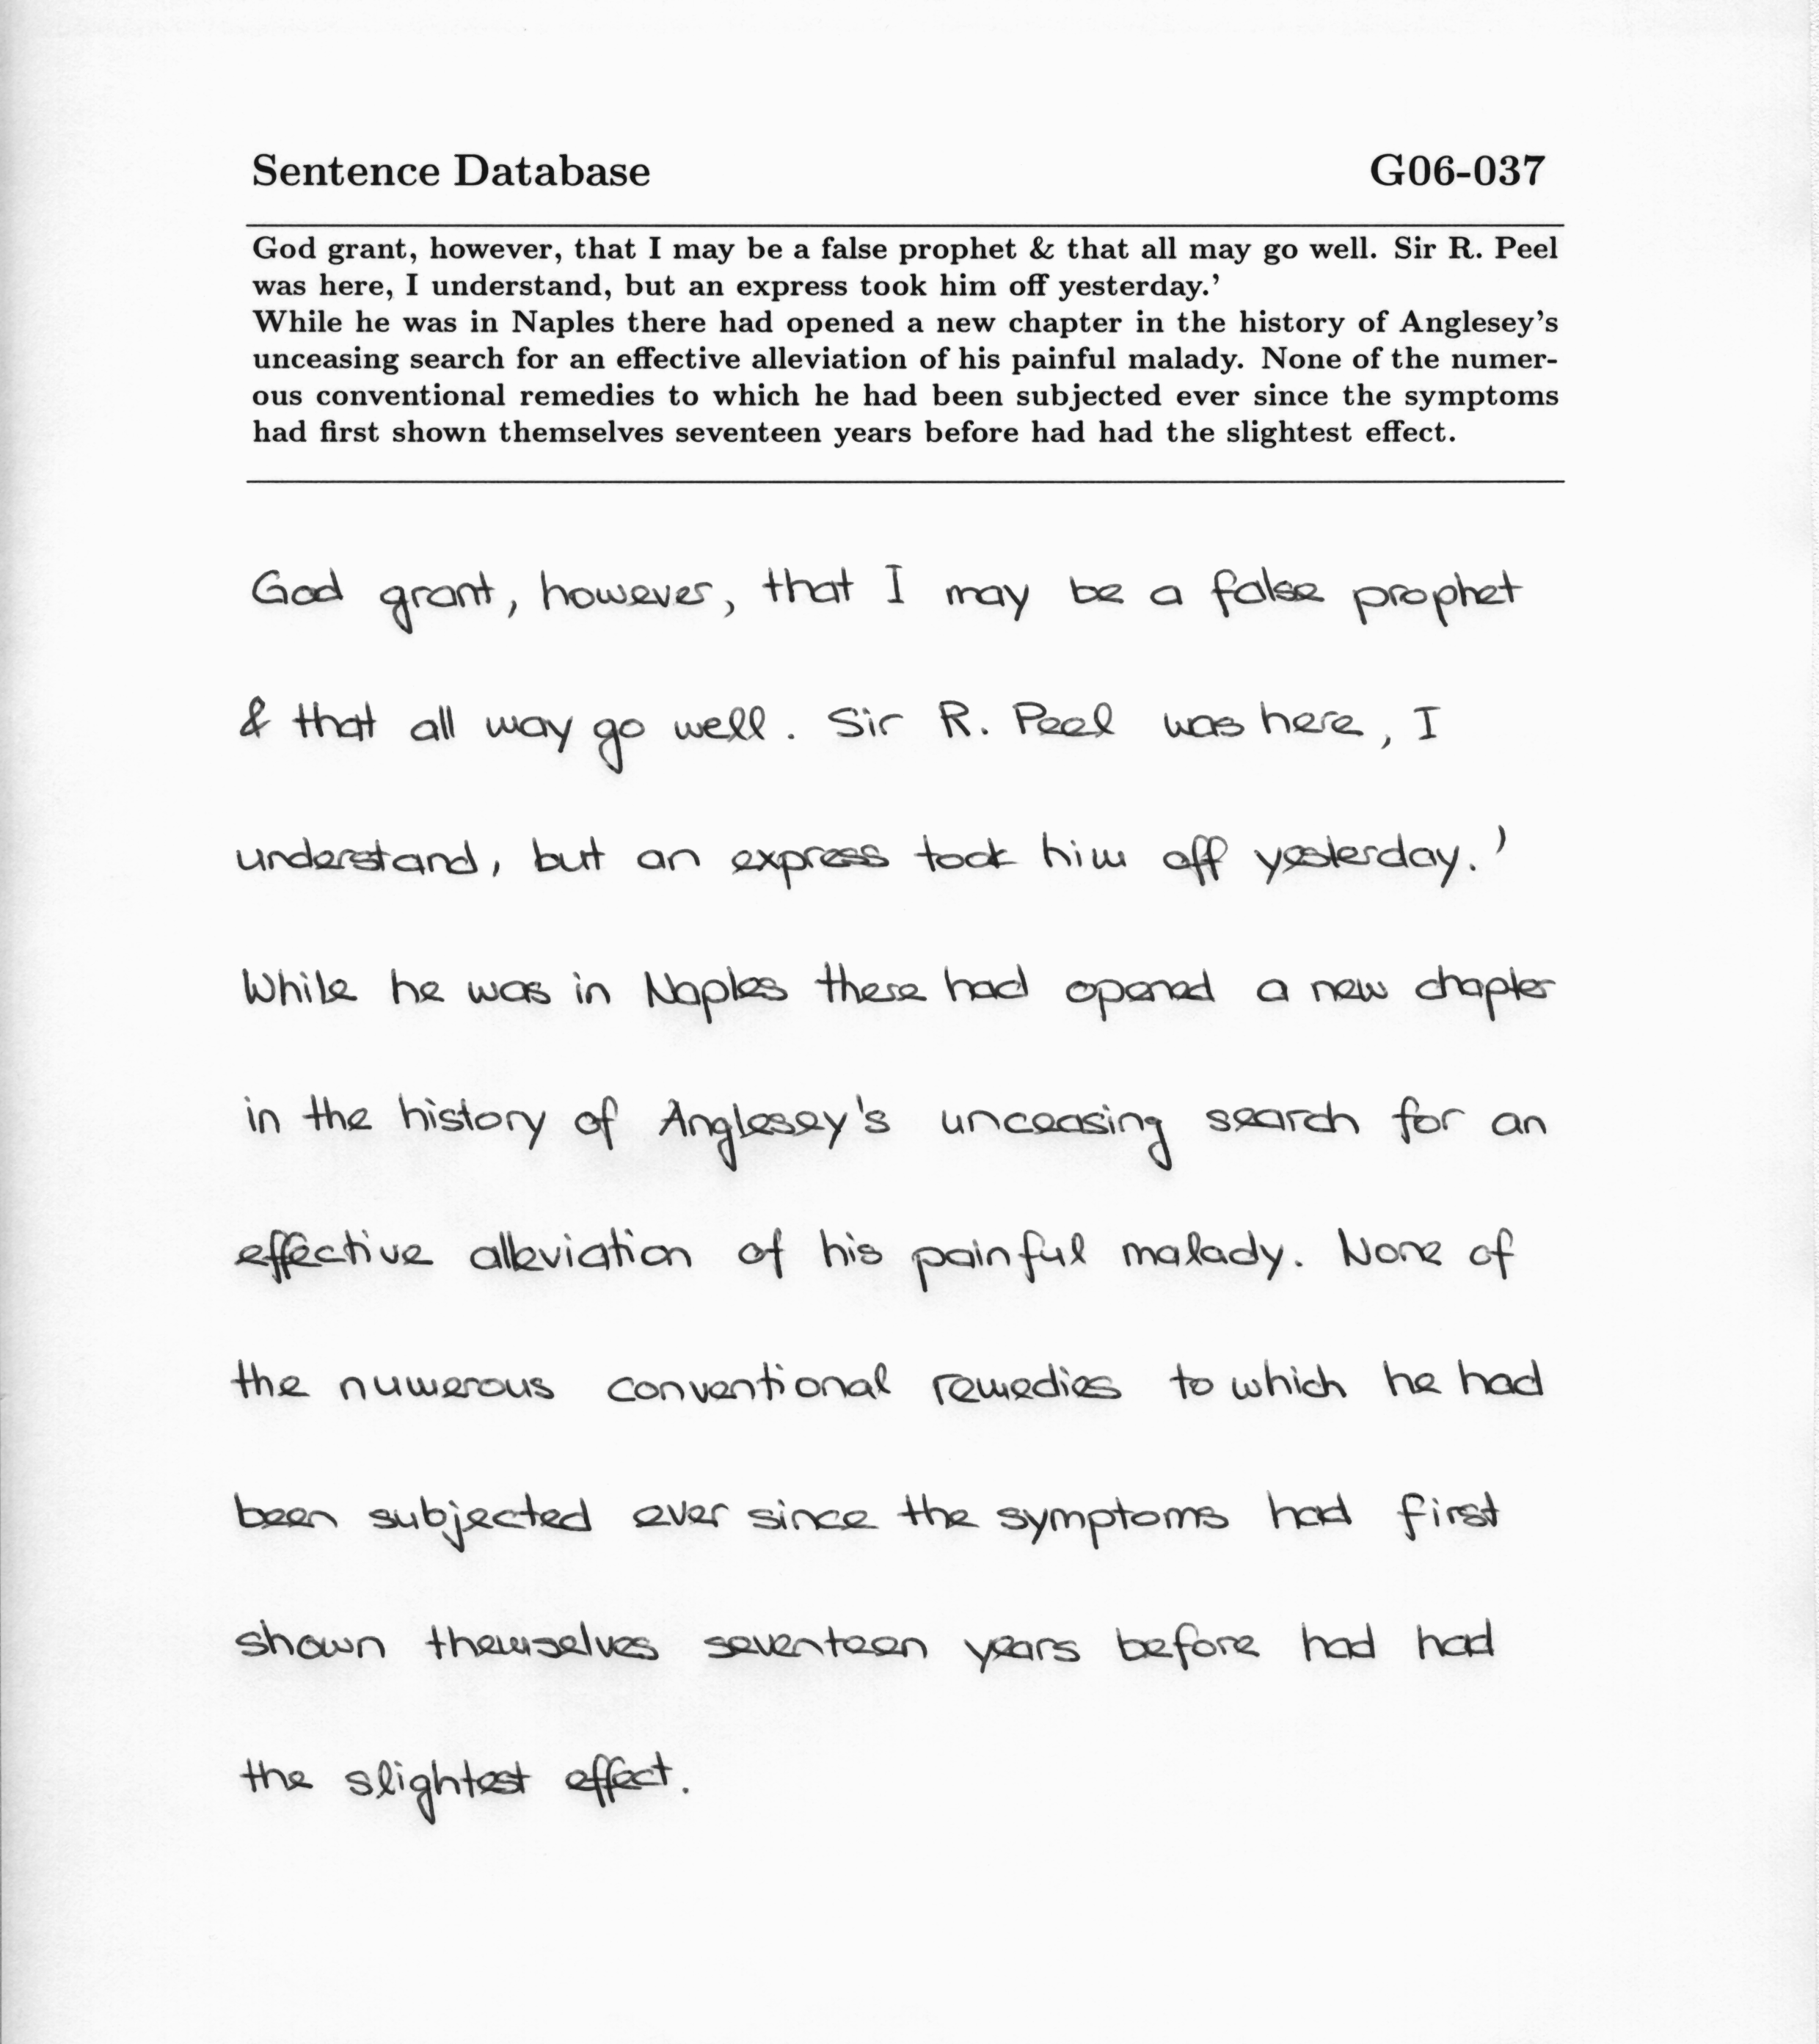 Sentence Database G06-037
God grant, however, that I may be a false prophet & that all may go well. Sir R. Peel
was here, I understand, but an express took him off yesterday.'
While he was in Naples there had opened a new chapter in the history of Anglesey's
unceasing search for an effective alleviation of his painful malady. None of the numer-
ous conventional remedies to which he had been subjected ever since the symptoms
had first shown themselves seventeen years before had had the slightest effect.
God grant, however, that I may be a false prophet
& that all may go well. Sir R. Peel was here, I
understand, but an express took him off yesterday.'
While he was in Naples there had opened a new chapter
in the history of Anglesey's unceasing search for an
effective alleviation of his painful malady. None of
the numerous conventional remedies to which he had
been subjected ever since the symptoms had first
shown themselves seventeen years before had had
the slightest effect.